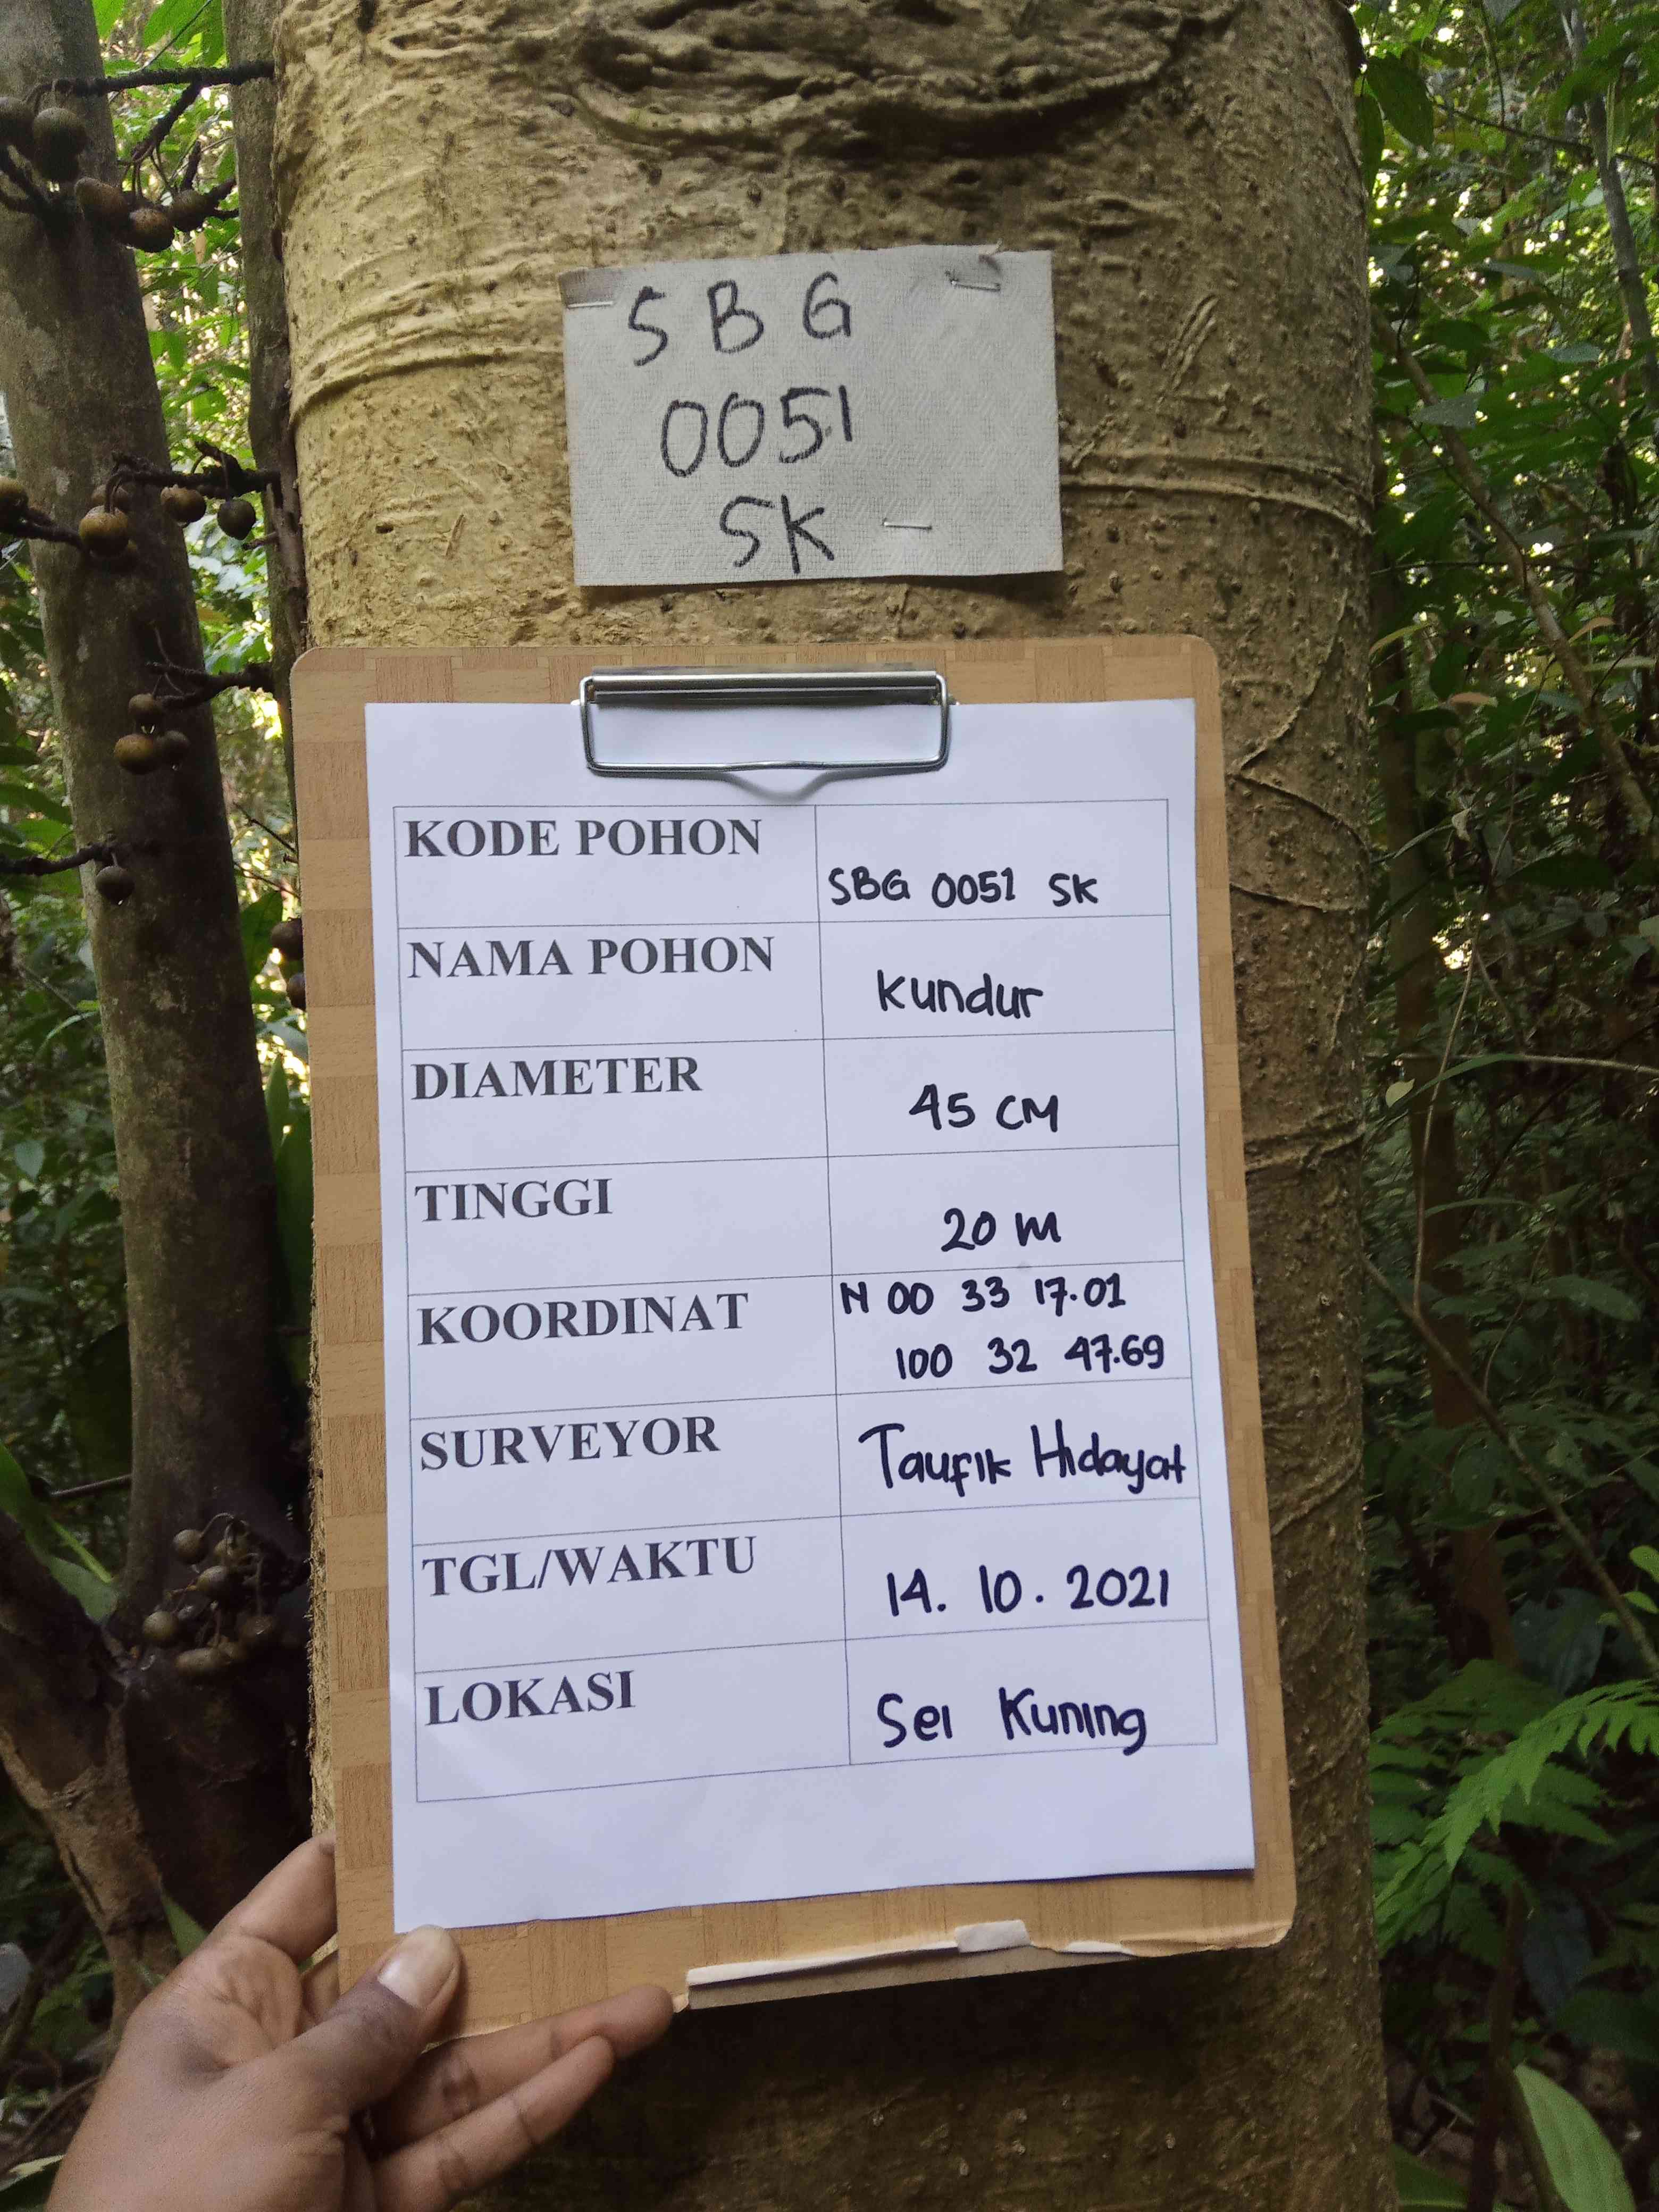 SBG
0051
SK
KODE POHON
SBG 0051 SK
NAMA POHON
Kundur
DIAMETER
45 CM
TINGGI
20 m
KOORDINAT
N 00 33 17.01
100 32 47.69
SURVEYOR
Taufik Hidayat
TGL/WAKTU
14. 10. 2021
LOKASI
Sei Kuning